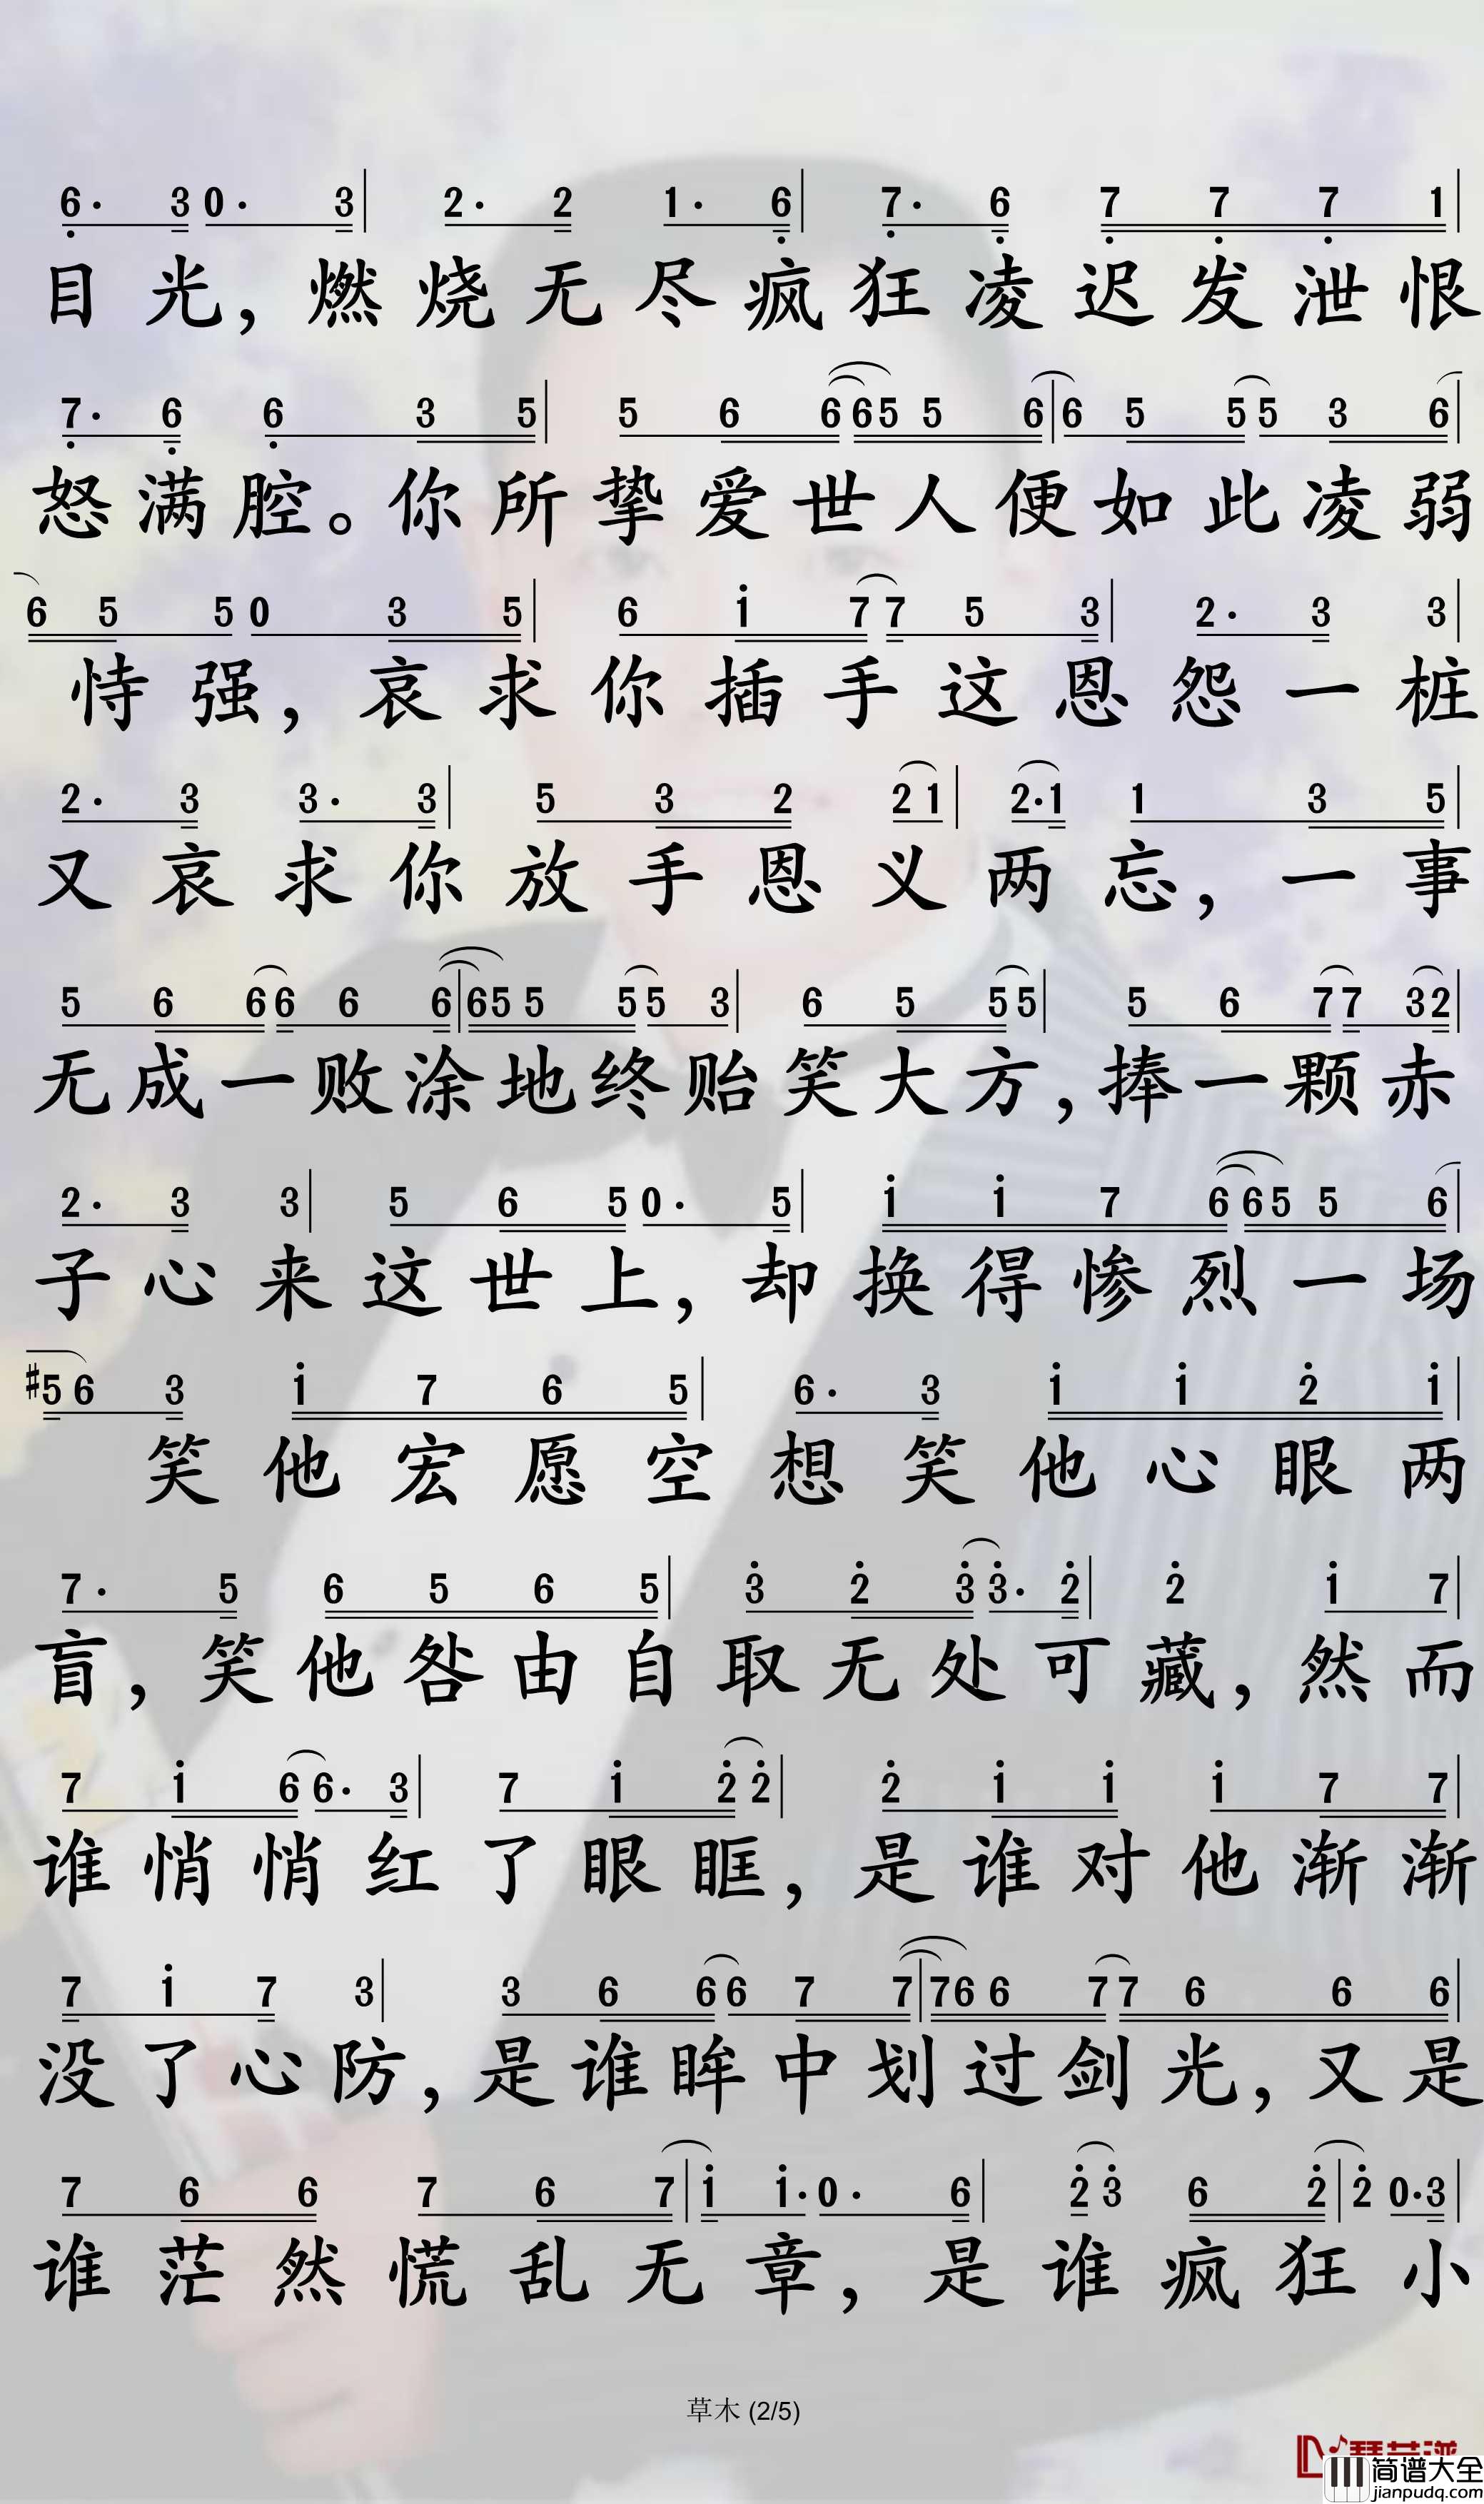 6. 3 0. 3 | 2. 2 1. 6 | 7. 6 7 7 7 1 |
目光，燃烧无尽疯狂凌迟发泄恨
7. 6 6 3 5 | 5 6 6 6 5 5 6 | 6 5 5 5 3 6 |
怒满腔。你所挚爱世人便如此凌弱
6 5 5 0 3 5 | 6 i 7 7 5 3 | 2. 3 3 |
恃强，哀求你插手这恩怨一桩
2. 3 3. 3 | 5 3 2 2 1 | 2. 1 1 3 5 |
又哀求你放手恩义两忘，一事
5 6 6 6 6 6 | 6 5 5 5 5 3 | 6 5 5 5 | 5 6 7 7 3 2 |
无成一败涂地终贻笑大方，捧一颗赤
2. 3 3 | 5 6 5 0. 5 | i i 7 6 6 5 5 6 |
子心来这世上，却换得惨烈一场
#5 6 3 i 7 6 5 | 6. 3 i i 2 i |
笑他宏愿空想笑他心眼两
7. 5 6 5 6 5 | 3 2 3 3. 2 | 2 i 7 |
盲，笑他咎由自取无处可藏，然而
7 i 6 6. 3 | 7 i 2 2 | 2 i i i 7 7 |
谁悄悄红了眼眶，是谁对他渐渐
7 i 7 3 | 3 6 6 6 7 7 | 7 6 6 7 7 6 6 6 |
没了心防，是谁眸中划过剑光，又是
7 6 6 7 6 7 | i i. 0. 6 | 2 3 6 2 | 2 0. 3 |
谁茫然慌乱无章，是谁疯狂小
草木 (2/5)
简谱大全
jianpudq.com